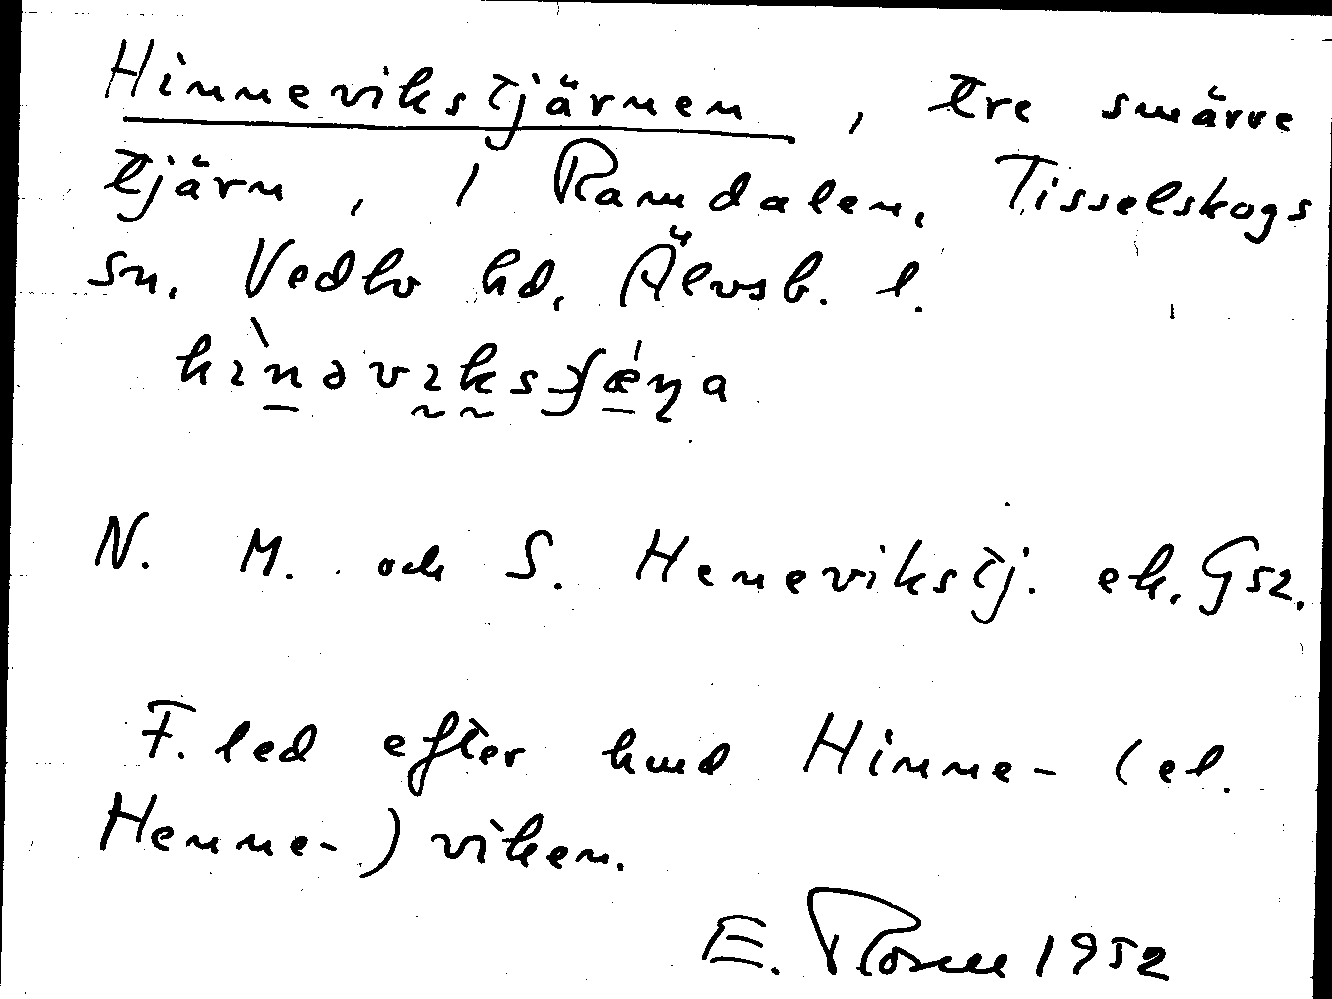 Hinnevikstjärnen, tre smärre
tjärn, i Ramdalen, Tisselskogs
sn. Vedbo hd, Älvsb. l.
N. M. och S. Henevikstj. ek. Gsz.
F. led efter hmd Hinne- (el.
Henne-) viken.
E. Rosell 1952